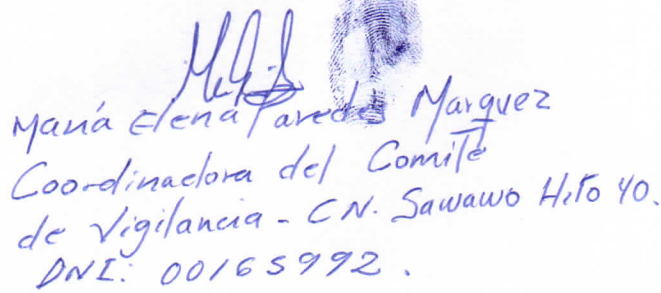 María Elena Paredes Marquez
Coordinadora del Comité
de Vigilancia - CN. Sawawo Hito 40.
DNI: 00165992.